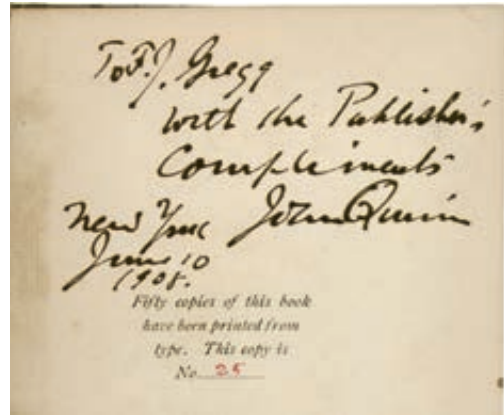 To F. J. Gregg
with the Publisher's
Compliments
New York John Quinn
June 10
1908.
Fifty copies of this book
have been printed from
type. This copy is
No. 25